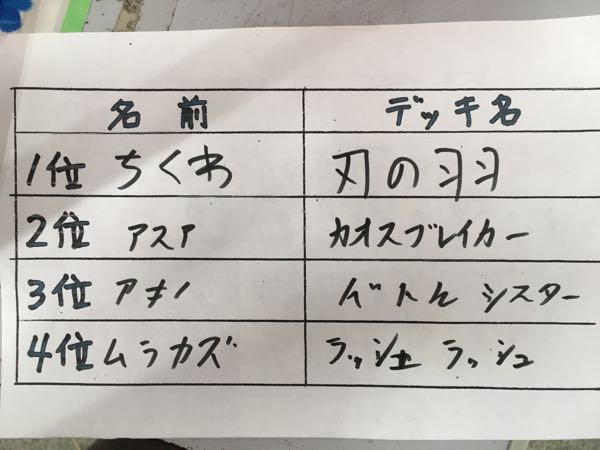 名前 デッキ名
1位 ちくわ 刃の羽
2位 アスア カオスブレイカー
3位 アキノ バトルシスター
4位 ムラカズ ラッシュ ラッシュ